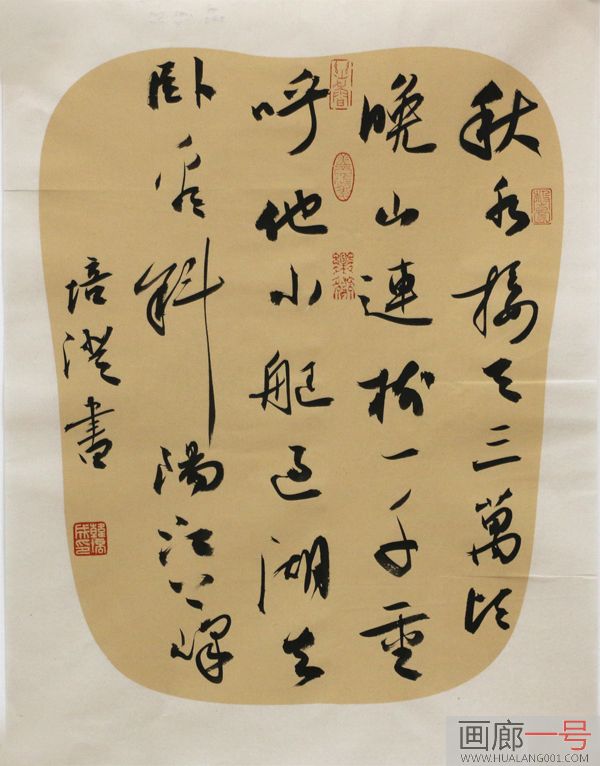 秋水接天三萬頃
晚山連樹一千重
呼他小艇過湖去
卧看斜陽江上峰
培澄書
画廊一号
WWW.HUALANG001.COM